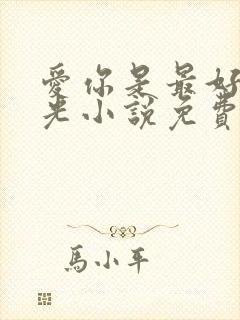 愛你是最好
光小說免費
馬小平